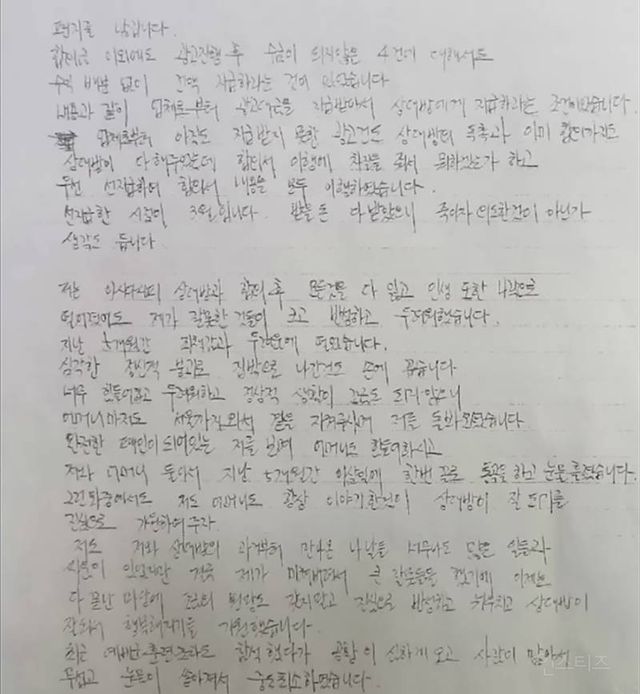 편지를 남깁니다.
합의금 이외에도 광고진행 후 수금이 되지않은 4건에 대해서도
수익 배분 없이 전액 지급하라는 것이 있었습니다
내용과 같이 업체로부터 광고대금을 지급받아서 상대방에게 지급하라는 조건이었습니다.
업체로부터 아직도 지급받지 못한 광고건도 상대방의 독촉과 이미 합의까지도
상대방이 다 해주었는데 합의서 이행에 차질을 줘서 뭐하겠는가 하고
우선 선지급하여 합의서 내용을 모두 이행하였습니다.
선지급한 시점이 3월입니다. 받을 돈 다 받았으니 죽이자 의도한건이 아닌가
생각도 듭니다
저는 상대방과 합의 후 모든것을 다 잃고 인생 또한 나락으로
떨어졌에도 제가 잘못한 것들이 크고 반성하고 두려워했습니다.
지난 5개월간 죄책감과 두려움에 떨었습니다.
심각한 정신적 불괴로 집밖으로 나간것도 손에 꼽습니다
너무 힘들어하고 두려워하고 정상적 생활이 조금도 되지않으니
어머니마저도 서울까지와서 곁을 지켜주실게 저를 돌봐오셨습니다
완전한 폐인이 되어있는 저를 보며 어머니도 힘들어하시고
저와 어머니 둘이서 지난 5개월간 이삼일에 한번 꼴로 통곡을 하고 눈물 흘렸습니다.
그런와중에서도 저도 어머니도 항상 이야기한건이 상대방이 잘 되기를
진심으로 기원하여주자.
저도 저와 상대방의 과거부터 만나온 나날들 너무나도 많은 일들과
사연이 있었지만 결국 제가 미쳐버려서 큰 잘못들을 했기에 이제는
다 끝난 마당에 조금의 변안도 갖지않고 진심으로 반성하고 뉘우치고 상대방이
잘되서 행복해지기를 기원했습니다.
최근 예비군훈련조차도 참석했다가 공황이 심하게 오고 사람이 많아서
무섭고 눈물이 쏟아져서 중도퇴소하였습니다.
인스티즈